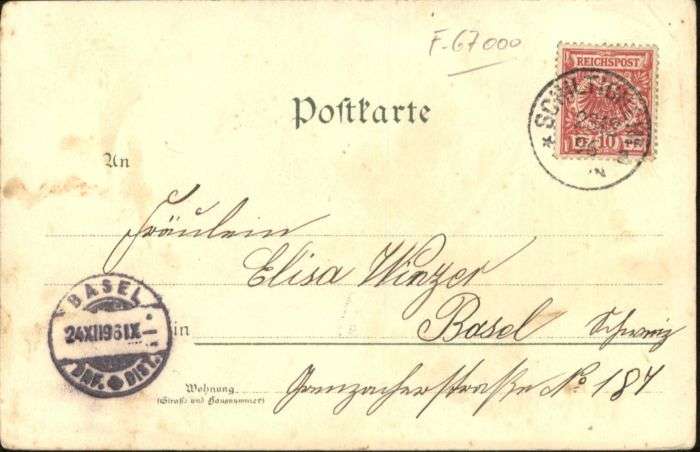 F-67000
REICHSPOST
10
SCHILTIGHEIM
Postkarte
An
Fräulein
Elisa Winzer
BASEL
24XII96IX
BRF. DIST.
in Basel Schweiz
Wohnung
(Straße und Hausnummer)
Grenzacherstraße No 187